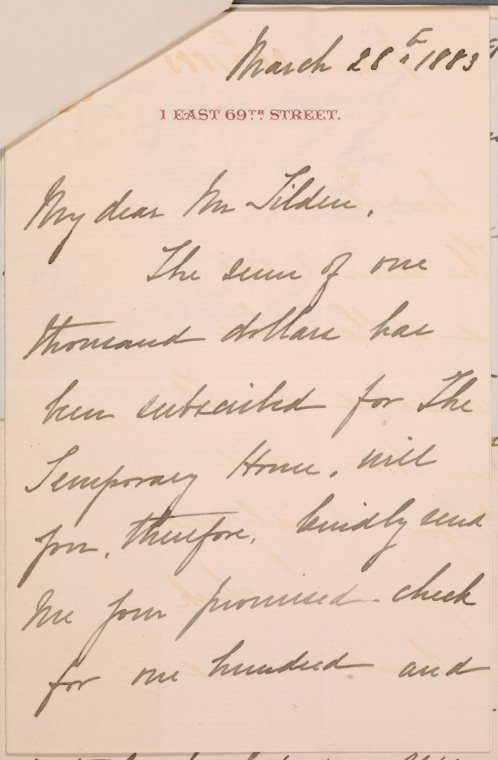 March 28th 1883
1 EAST 69TH STREET.
My dear Mr Tilden,
The sum of one
thousand dollars has
been subscribed for The
Temporary Home. Will
you, therefore, kindly send
me your promised check
for one hundred and